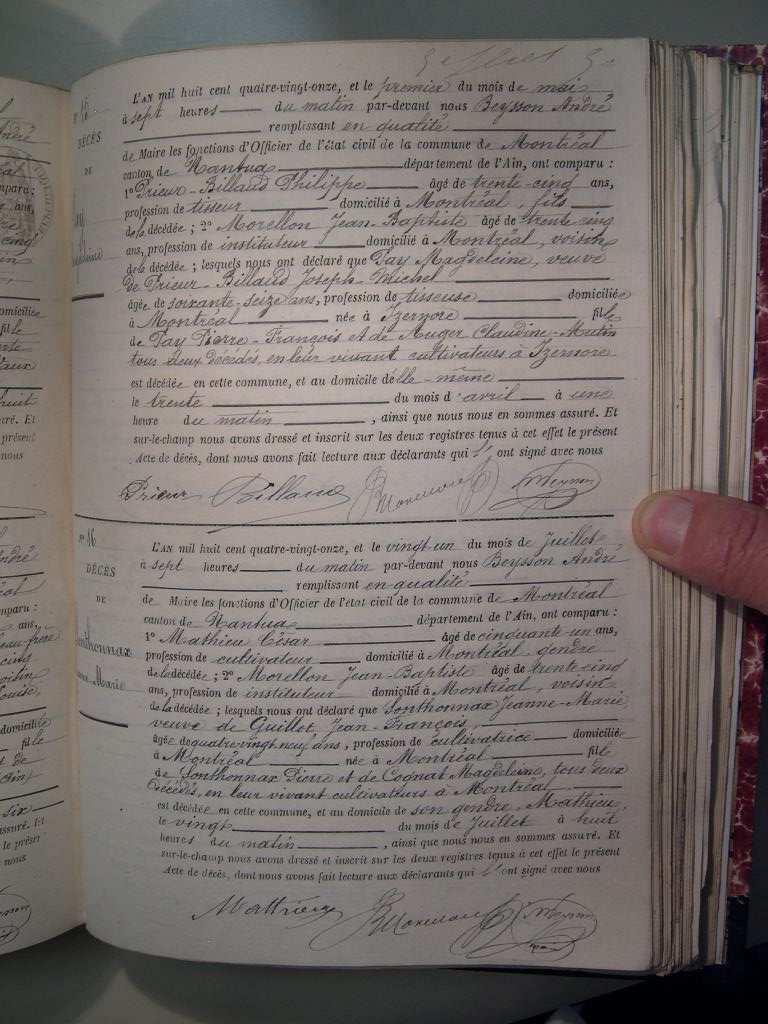 N° 15
DÉCÈS
DE
L'AN mil huit cent quatre-vingt-onze, et le premier du mois de mai
à sept heures du matin par-devant nous Beysson André
remplissant en qualité
de Maire les fonctions d'Officier de l'état civil de la commune de Montréal
canton de Nantua département de l'Ain, ont comparu :
1° Prieur-Billaud Philippe âgé de trente-cinq ans,
profession de tisseur domicilié à Montréal, fils
de la décédée ; 2° Morellon Jean-Baptiste âgé de trente cinq
ans, profession de instituteur domicilié à Montréal, voisin
de la décédée ; lesquels nous ont déclaré que Pay Magdeleine, veuve
de Prieur-Billaud Joseph-Michel
âgée de soixante-seize ans, profession de tisseuse domiciliée
à Montréal née à Izernore fille
de Pay Pierre-François et de Auger Claudine-Mutin
tous deux décédés, en leur vivant cultivateurs à Izernore
est décédée en cette commune, et au domicile d'elle-même
le trente du mois d'avril à une
heure du matin , ainsi que nous nous en sommes assuré. Et
sur-le-champ nous avons dressé et inscrit sur les deux registres tenus à cet effet le présent
Acte de décès, dont nous avons fait lecture aux déclarants qui l' ont signé avec nous
Prieur Billaud
N° 16
DÉCÈS
DE
Sonthonnax
Jeanne Marie
L'AN mil huit cent quatre-vingt-onze, et le vingt-un du mois de Juillet
à sept heures du matin par-devant nous Beysson André
remplissant en qualité
de Maire les fonctions d'Officier de l'état civil de la commune de Montréal
canton de Nantua département de l'Ain, ont comparu :
1° Mathieu César âgé de cinquante-un ans,
profession de cultivateur domicilié à Montréal, gendre
de la décédée ; 2° Morellon Jean-Baptiste âgé de trente cinq
ans, profession de instituteur domicilié à Montréal, voisin
de la décédée ; lesquels nous ont déclaré que Sonthonnax Jeanne-Marie,
veuve de Guillot, Jean-François,
âgée de quatre-vingt-neuf ans, profession de cultivatrice domiciliée
à Montréal née à Montréal fille
de Sonthonnax Pierre et de Cognat Magdeleine, tous deux
décédés, en leur vivant cultivateurs à Montréal
est décédée en cette commune, et au domicile de son gendre Mathieu,
le vingt du mois de Juillet à huit
heures du matin , ainsi que nous nous en sommes assuré. Et
sur-le-champ nous avons dressé et inscrit sur les deux registres tenus à cet effet le présent
Acte de décès, dont nous avons fait lecture aux déclarants qui l' ont signé avec nous